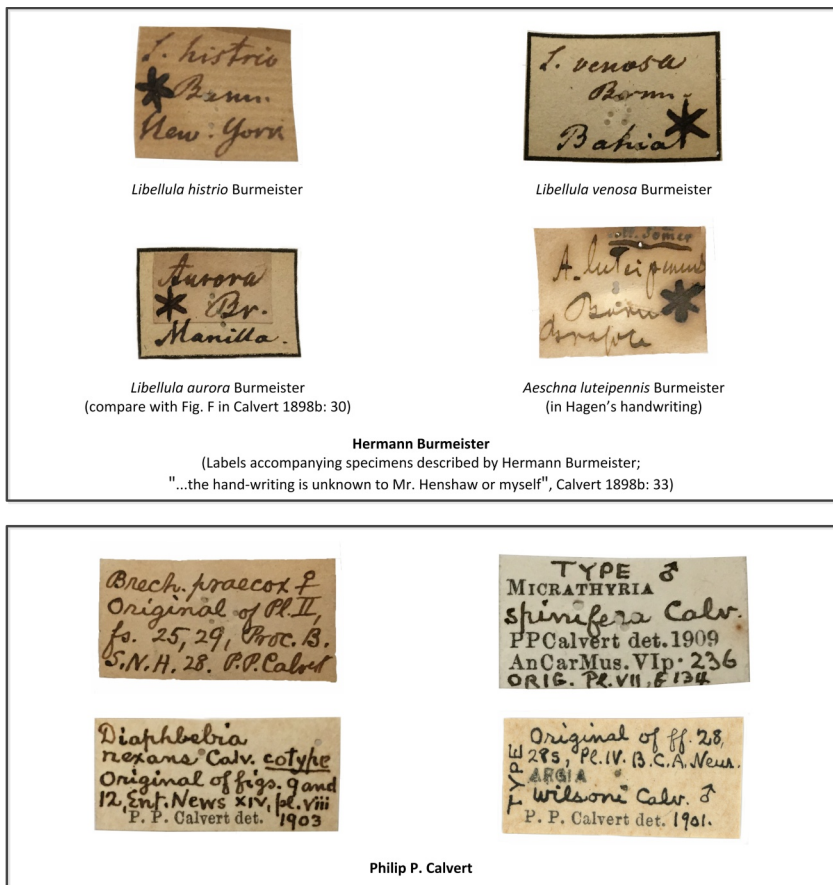 L. histrio
Burm.
New-York
Libellula histrio Burmeister
L. venosa
Burm.
Bahia
Libellula venosa Burmeister
Aurora
Br.
Manilla.
Libellula aurora Burmeister
(compare with Fig. F in Calvert 1898b: 30)
A. luteipennis
Burm
Aeschna luteipennis Burmeister
(in Hagen’s handwriting)
Hermann Burmeister
(Labels accompanying specimens described by Hermann Burmeister;
"...the hand-writing is unknown to Mr. Henshaw or myself", Calvert 1898b: 33)
Brech. praecox ♀
Original of Pl. II,
fs. 25, 29, Proc. B.
S.N.H. 28. P.P. Calvert
TYPE ♂
MICRATHYRIA
spinifera Calv.
PPCalvert det. 1909
AnCarMus. VIp. 236
ORIG. Pl. VII, f 134
Diaphlebia
nexans Calv. cotype
Original of figs. 9 and
12, Ent. News XIV, pl. viii
P. P. Calvert det. 1903
TYPE
Original of ff. 28,
28s, Pl. IV. B.C.A. Neur.
ARGIA
wilsoni Calv. ♂
P. P. Calvert det. 1901.
Philip P. Calvert